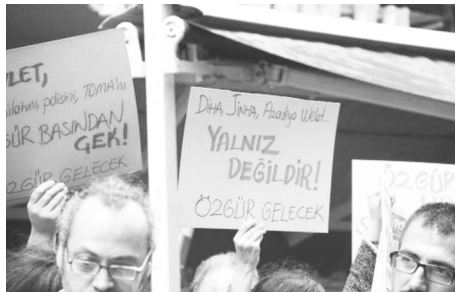 LET,
silahını, polisini, TOMA'nı
GÜR BASINDAN
ÇEK!
ÖZGÜR GELECEK
DİHA, JİNHA, Azadiya Welat
YALNIZ
DEĞİLDİR!
ÖZGÜR GELECEK
ÖZGÜR